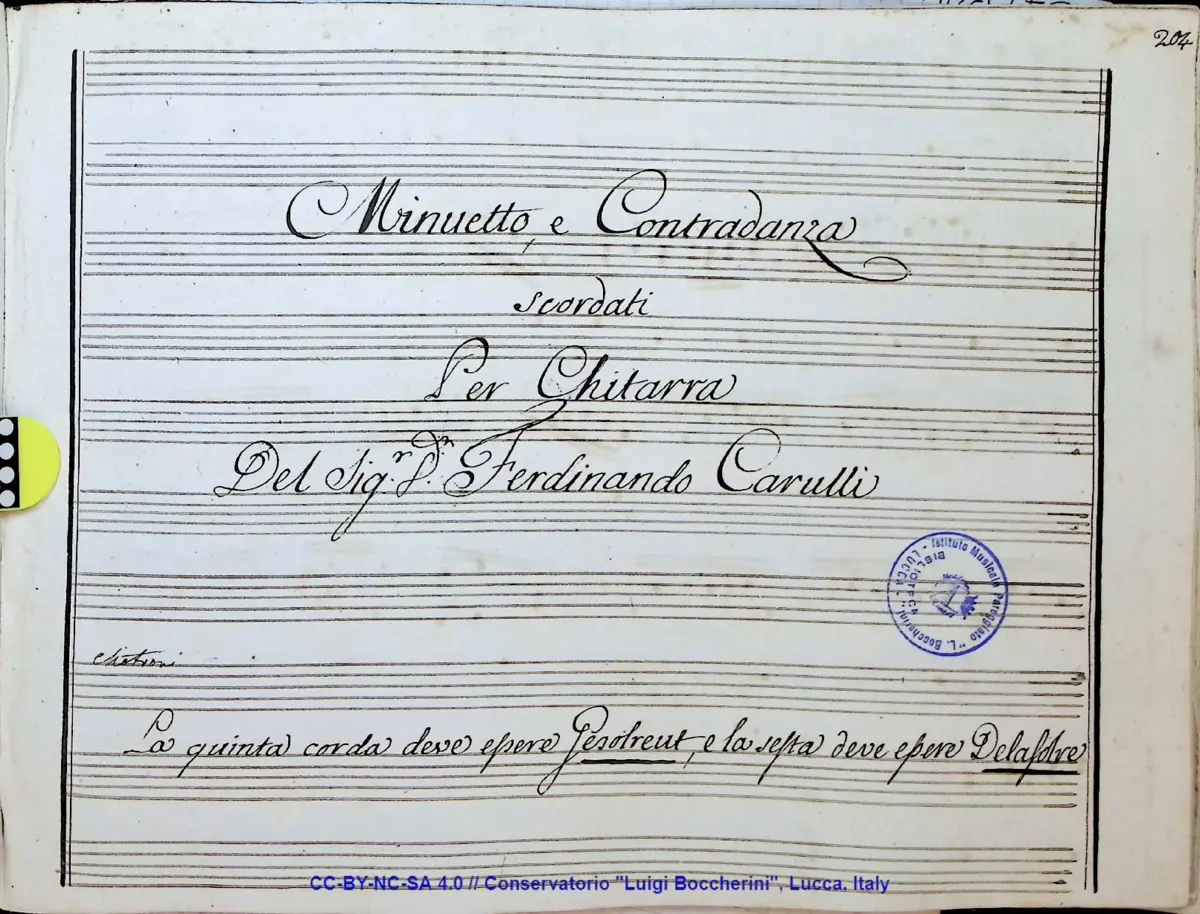 204
Minuetto, e Contradanza
scordati
Per Chitarra
Del Sig.r D.n Ferdinando Carulli
Istituto Musicale Pareggiato "L. Boccherini" - LUCCA -
BIBLIOTECA
La quinta corda deve essere Gesolreut, e la sesta deve essere Delasolre
CC-BY-NC-SA 4.0 // Conservatorio "Luigi Boccherini", Lucca, Italy